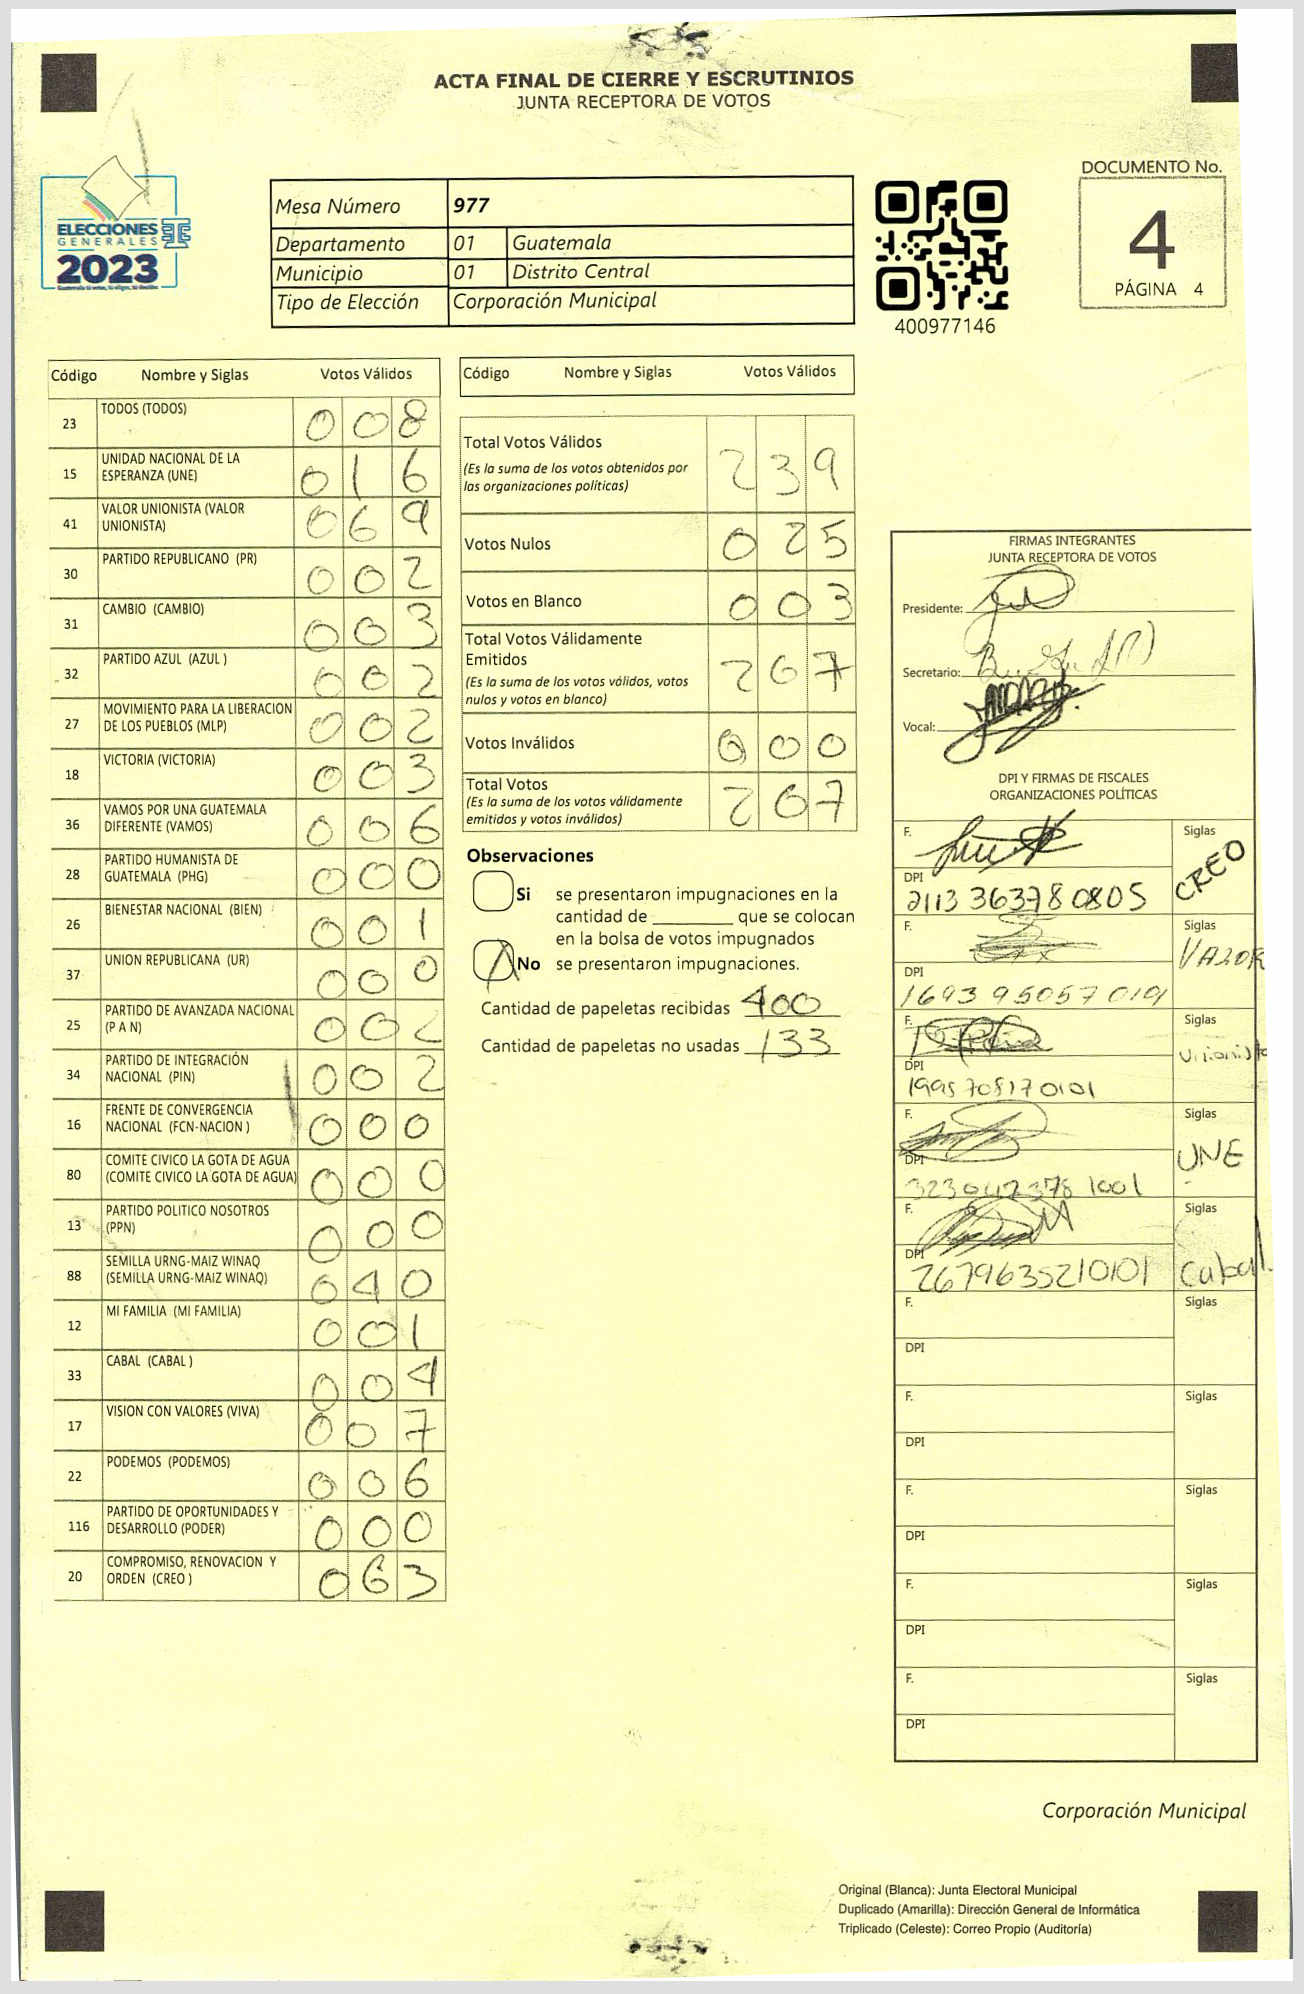 ACTA FINAL DE CIERRE Y ESCRUTINIOS
JUNTA RECEPTORA DE VOTOS
ELECCIONES
GENERALES
2023
Mesa Número 977
Departamento 01 Guatemala
Municipio 01 Distrito Central
Tipo de Elección Corporación Municipal
400977146
DOCUMENTO No.
4
PÁGINA 4
Código Nombre y Siglas Votos Válidos
23 TODOS (TODOS) 008
15 UNIDAD NACIONAL DE LA
ESPERANZA (UNE) 016
41 VALOR UNIONISTA (VALOR
UNIONISTA) 069
30 PARTIDO REPUBLICANO (PR) 002
31 CAMBIO (CAMBIO) 003
32 PARTIDO AZUL (AZUL ) 002
27 MOVIMIENTO PARA LA LIBERACION
DE LOS PUEBLOS (MLP) 002
18 VICTORIA (VICTORIA) 003
36 VAMOS POR UNA GUATEMALA
DIFERENTE (VAMOS) 006
28 PARTIDO HUMANISTA DE
GUATEMALA (PHG) 000
26 BIENESTAR NACIONAL (BIEN) 001
37 UNION REPUBLICANA (UR) 000
25 PARTIDO DE AVANZADA NACIONAL
(P A N) 002
34 PARTIDO DE INTEGRACIÓN
NACIONAL (PIN) 002
16 FRENTE DE CONVERGENCIA
NACIONAL (FCN-NACION ) 000
80 COMITE CIVICO LA GOTA DE AGUA
(COMITE CIVICO LA GOTA DE AGUA) 000
13 PARTIDO POLITICO NOSOTROS
(PPN) 000
88 SEMILLA URNG-MAIZ WINAQ
(SEMILLA URNG-MAIZ WINAQ) 040
12 MI FAMILIA (MI FAMILIA) 001
33 CABAL (CABAL ) 004
17 VISION CON VALORES (VIVA) 007
22 PODEMOS (PODEMOS) 006
116 PARTIDO DE OPORTUNIDADES Y
DESARROLLO (PODER) 000
20 COMPROMISO, RENOVACION Y
ORDEN (CREO ) 063
Código Nombre y Siglas Votos Válidos
Total Votos Válidos 239
(Es la suma de los votos obtenidos por
las organizaciones políticas)
Votos Nulos 025
Votos en Blanco 003
Total Votos Válidamente
Emitidos 267
(Es la suma de los votos válidos, votos
nulos y votos en blanco)
Votos Inválidos 000
Total Votos 267
(Es la suma de los votos válidamente
emitidos y votos inválidos)
Observaciones
Si se presentaron impugnaciones en la
cantidad de que se colocan
en la bolsa de votos impugnados
No se presentaron impugnaciones.
Cantidad de papeletas recibidas 400
Cantidad de papeletas no usadas 133
FIRMAS INTEGRANTES
JUNTA RECEPTORA DE VOTOS
Presidente:
Secretario:
Vocal:
DPI Y FIRMAS DE FISCALES
ORGANIZACIONES POLÍTICAS
F. Siglas
CREO
DPI
2113 36378 0805
F. Siglas
VALOR
DPI
1693 95057 0101
F. Siglas
Unionista
DPI
1995 70817 0101
F. Siglas
UNE
DPI
3230 42378 1001
F. Siglas
Cabal
DPI
2679635210101
F. Siglas
DPI
F. Siglas
DPI
F. Siglas
DPI
F. Siglas
DPI
F. Siglas
DPI
Corporación Municipal
Original (Blanca): Junta Electoral Municipal
Duplicado (Amarilla): Dirección General de Informática
Triplicado (Celeste): Correo Propio (Auditoría)